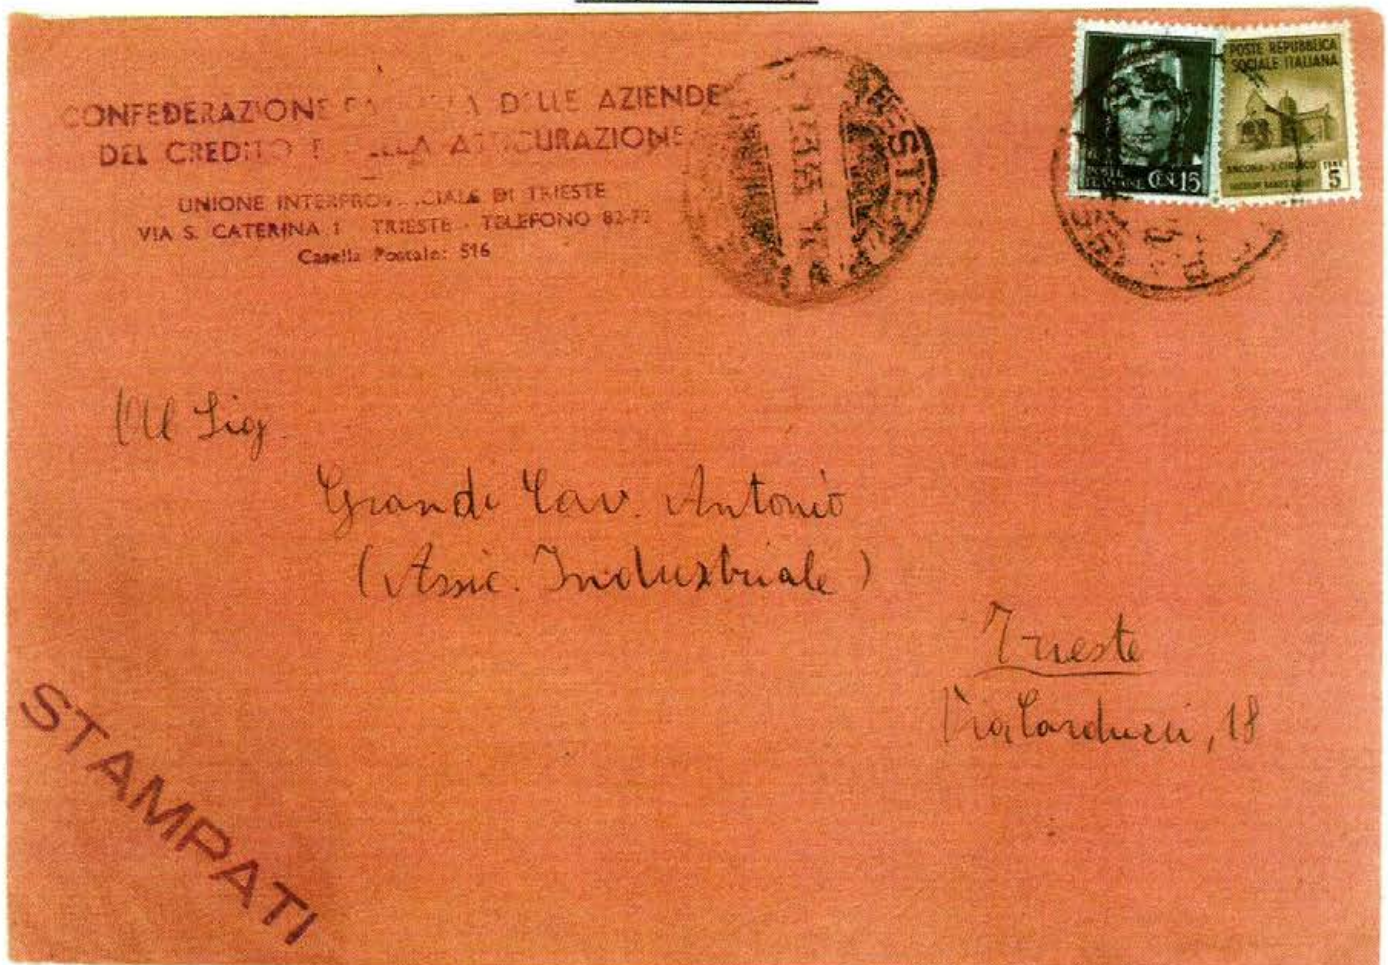 CONFEDERAZIONE DELLE AZIENDE
DEL CREDITO E DELLA ASSICURAZIONE
UNIONE INTERPROVINCIALE DI TRIESTE
VIA S. CATERINA 1 TRIESTE - TELEFONO 82-72
Casella Postale: 516
TRIESTE
POSTE REPUBBLICA
SOCIALE ITALIANA
CEN. 15
ANCONA - S. CIRIACO
5
Al Sig.
Grandi Cav. Antonio
(Assic. Industriale)
Trieste
Via Carducci, 18
STAMPATI